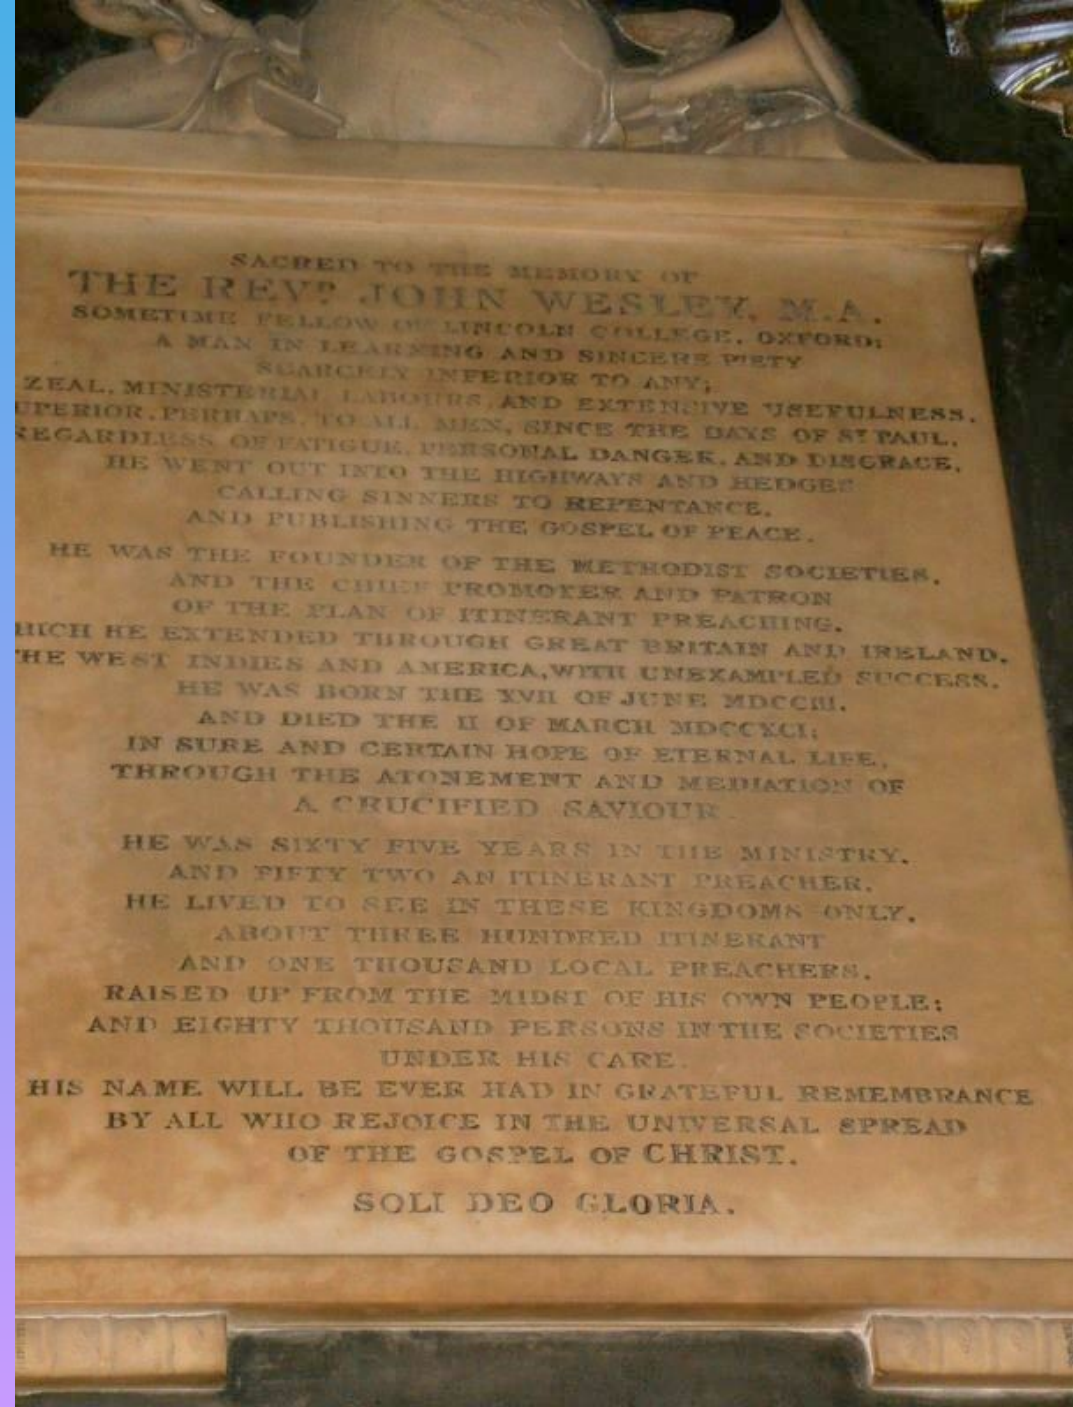 SACRED TO THE MEMORY OF
THE REVD JOHN WESLEY, M.A.
SOMETIME FELLOW OF LINCOLN COLLEGE, OXFORD;
A MAN IN LEARNING AND SINCERE PIETY
SCARCELY INFERIOR TO ANY;
ZEAL, MINISTERIAL LABOURS, AND EXTENSIVE USEFULNESS,
UPERIOR, PERHAPS, TO ALL MEN, SINCE THE DAYS OF ST PAUL.
REGARDLESS OF FATIGUE, PERSONAL DANGER, AND DISGRACE,
HE WENT OUT INTO THE HIGHWAYS AND HEDGES
CALLING SINNERS TO REPENTANCE,
AND PUBLISHING THE GOSPEL OF PEACE.
HE WAS THE FOUNDER OF THE METHODIST SOCIETIES,
AND THE CHIEF PROMOTER AND PATRON
OF THE PLAN OF ITINERANT PREACHING,
HICH HE EXTENDED THROUGH GREAT BRITAIN AND IRELAND,
THE WEST INDIES AND AMERICA, WITH UNEXAMPLED SUCCESS.
HE WAS BORN THE XVII OF JUNE MDCCIII,
AND DIED THE II OF MARCH MDCCXCI;
IN SURE AND CERTAIN HOPE OF ETERNAL LIFE,
THROUGH THE ATONEMENT AND MEDIATION OF
A CRUCIFIED SAVIOUR.
HE WAS SIXTY FIVE YEARS IN THE MINISTRY,
AND FIFTY TWO AN ITINERANT PREACHER.
HE LIVED TO SEE IN THESE KINGDOMS ONLY,
ABOUT THREE HUNDRED ITINERANT
AND ONE THOUSAND LOCAL PREACHERS,
RAISED UP FROM THE MIDST OF HIS OWN PEOPLE;
AND EIGHTY THOUSAND PERSONS IN THE SOCIETIES
UNDER HIS CARE.
HIS NAME WILL BE EVER HAD IN GRATEFUL REMEMBRANCE
BY ALL WHO REJOICE IN THE UNIVERSAL SPREAD
OF THE GOSPEL OF CHRIST.
SOLI DEO GLORIA.